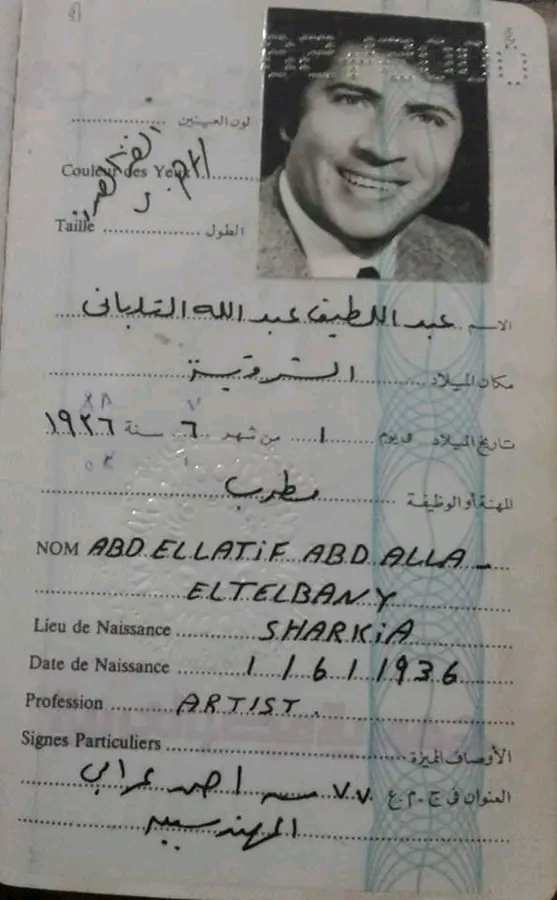 لون العينين
Couleur des Yeux
Taille الطول
الاسم عبد اللطيف عبد الله التلباني
مكان الميلاد الشرقية
تاريخ الميلاد في يوم ١ من شهر ٦ سنة ١٩٣٦
المهنة أو الوظيفة مطرب
NOM ABD ELLATIF ABD ALLA -
ELTELBANY
Lieu de Naissance SHARKIA
Date de Naissance 1 / 6 / 1936
Profession ARTIST.
Signes Particuliers الأوصاف المميزة
العنوان في ج . م . ع ٧٧ احمد عرابي
المهندسين